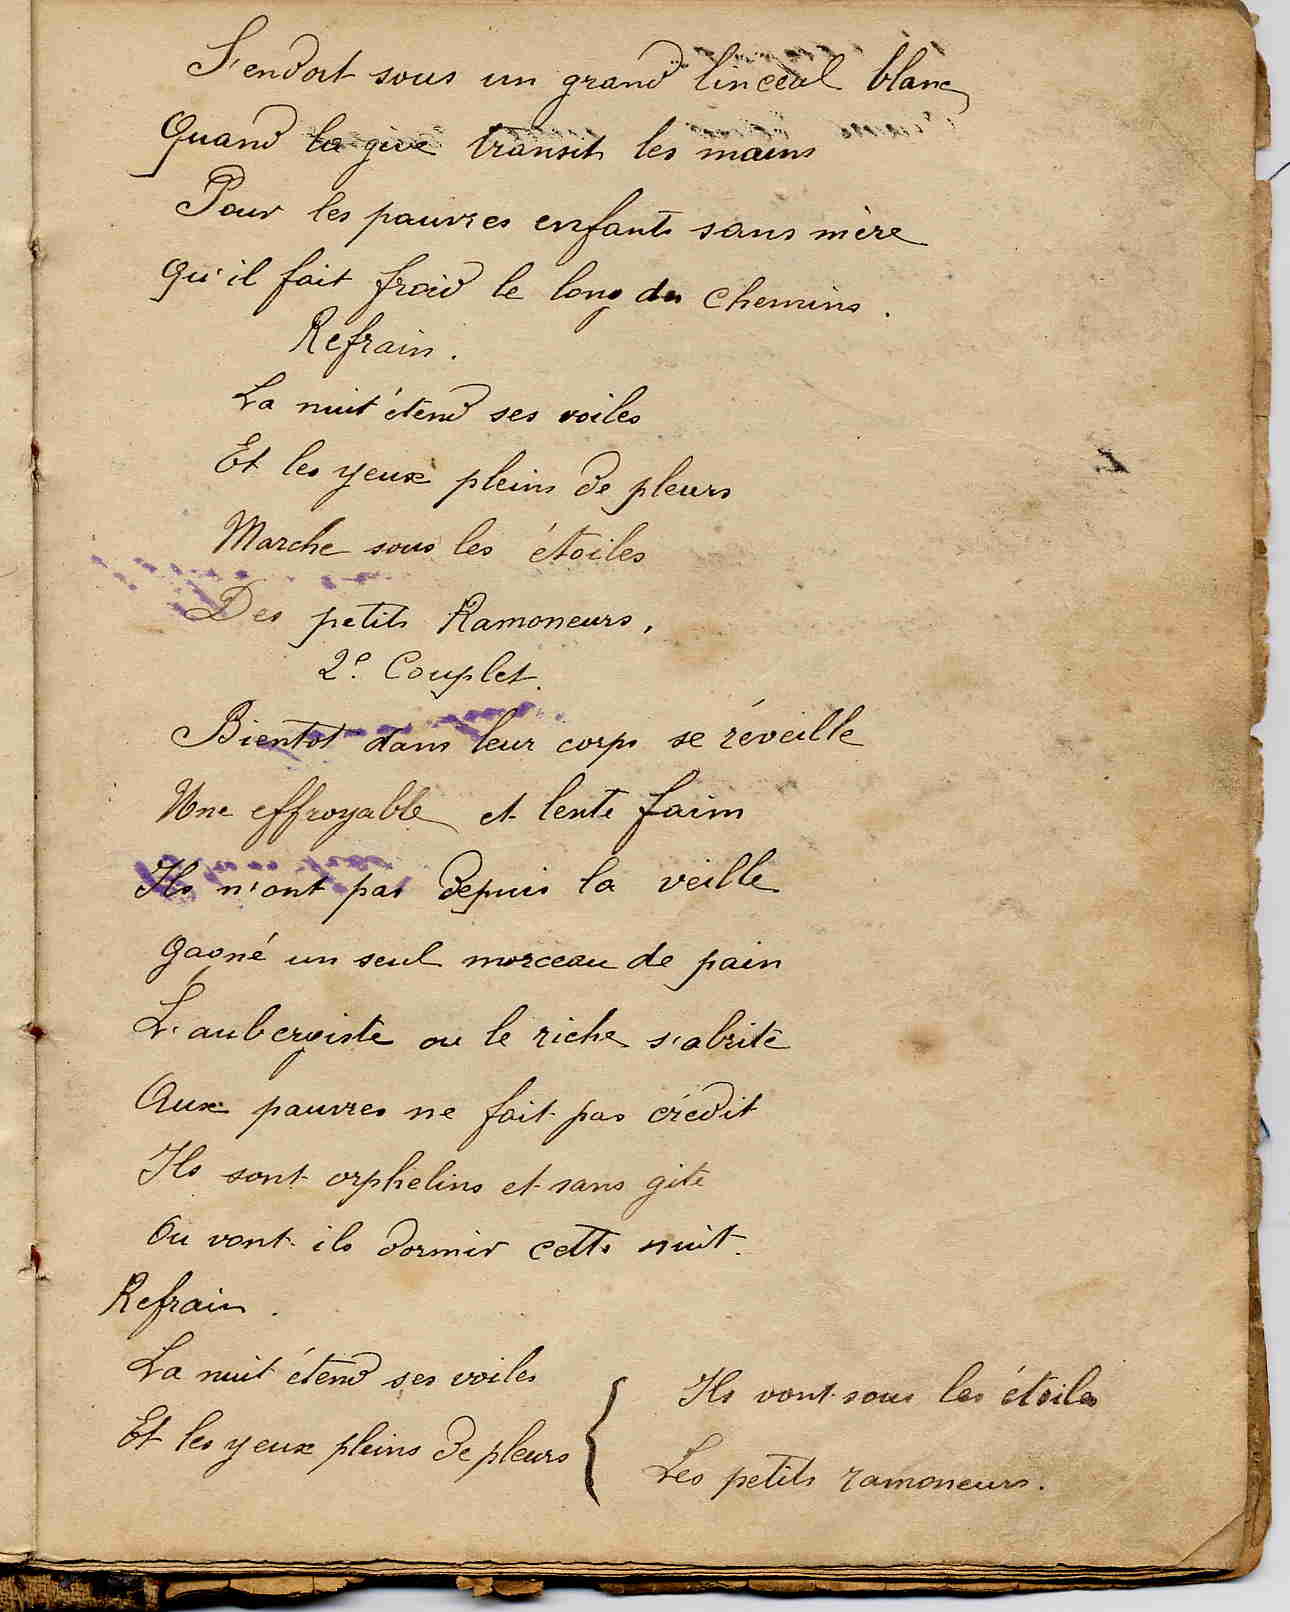 S'endort sous un grand linceul blanc
Quand la givre transit les mains
Pour les pauvres enfants sans mère
Qu'il fait froid le long des chemins.
Refrain.
La nuit étend ses voiles
Et les yeux pleins de pleurs
Marche sous les étoiles
Des petits Ramoneurs,
2e. Couplet.
Bientot dans leur corps se réveille
Une effroyable et lente faim
Ils n'ont pas depuis la veille
Gagné un seul morceau de pain
L'aubergiste ou le riche s'abrite
Aux pauvres ne fait pas crédit
Ils sont orphelins et sans gite
Ou vont ils dormir cette nuit.
Refrain.
La nuit étend ses voiles
Et les yeux pleins de pleurs
{
Ils vont sous les étoiles
Les petits ramoneurs.